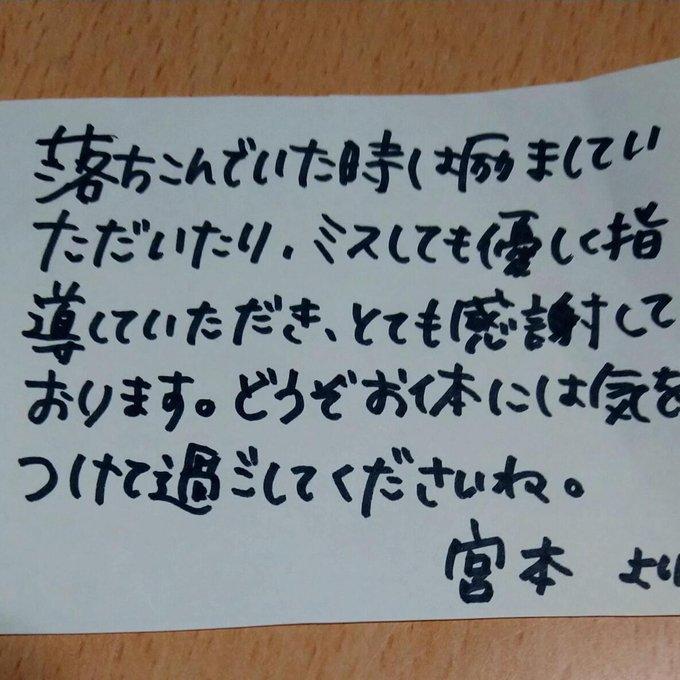 落ちこんでいた時は励ましてい
ただいたり、ミスしても優しく指
導していただき、とても感謝して
おります。どうぞお体には気を
つけて過ごしてくださいね。
宮本 より